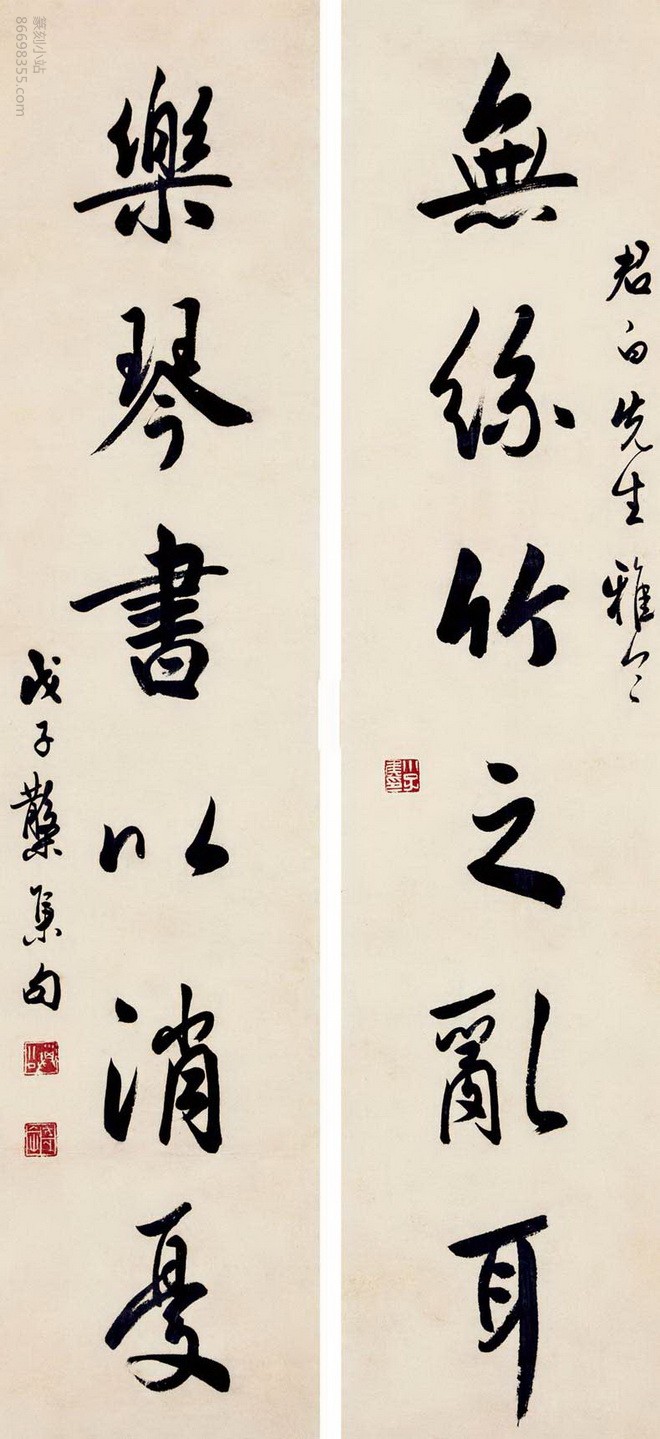 君白先生雅令
無絲竹之亂耳
樂琴書以消憂
戊子 集句
篆刻小站
86698355.com